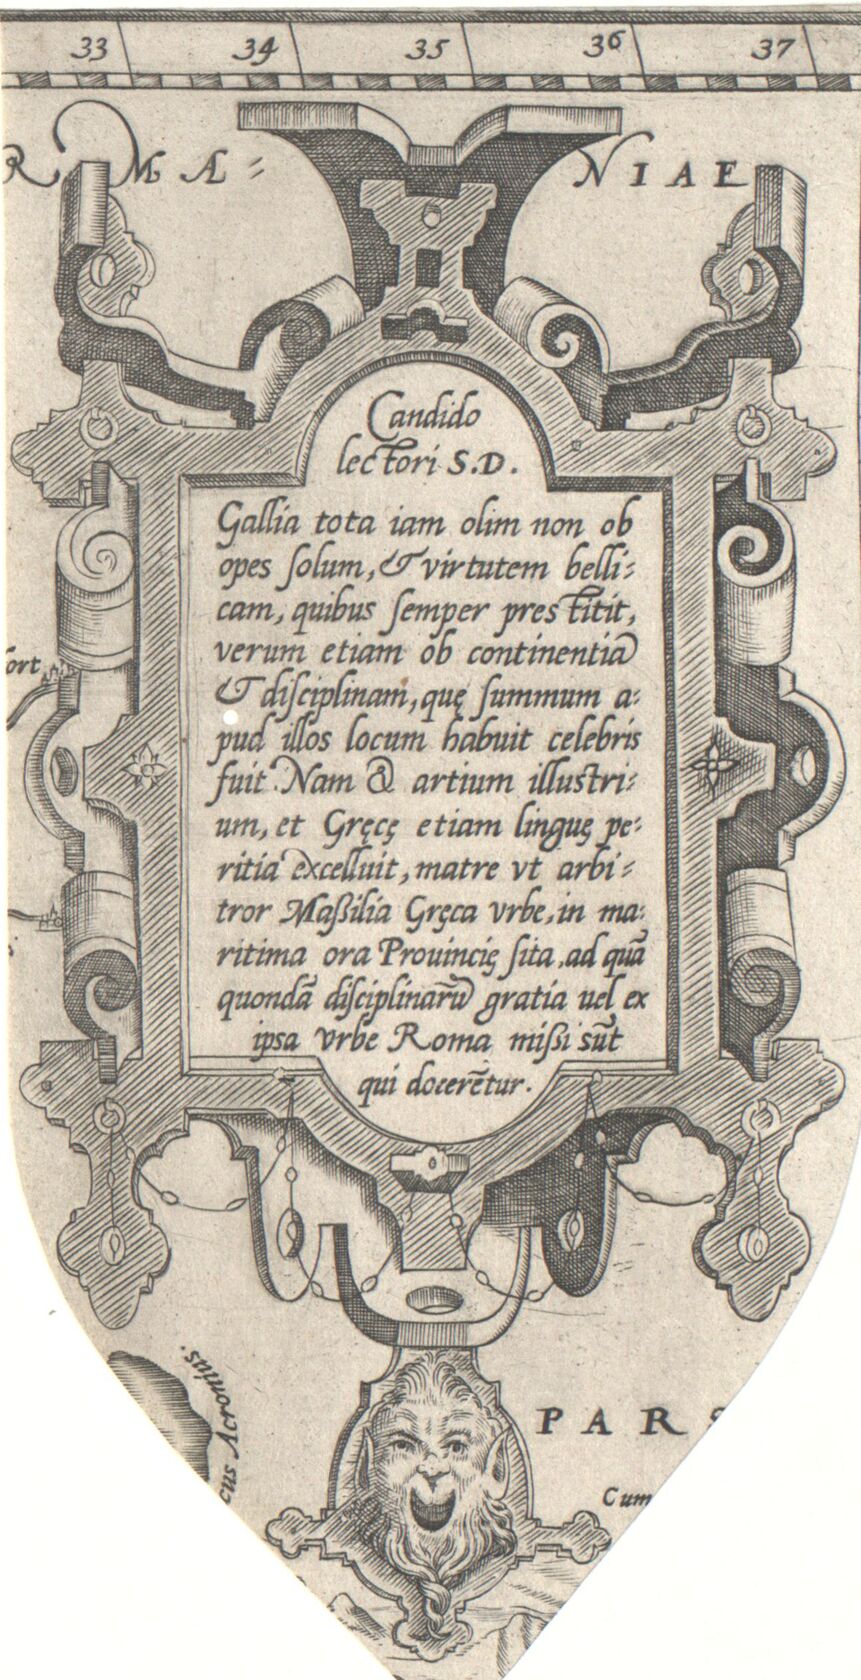 33 34 35 36 37
R M A =
N I A E
Candido
lectori S.D.
Gallia tota iam olim non ob
opes ſolum, & virtutem belli=
cam, quibus ſemper preſtitit,
verum etiam ob continentiã
& diſciplinam, quę ſummum a=
pud illos locum habuit celebris
fuit. Nam & artium illuſtri=
um, et Gręcę etiam linguę pe=
ritia excelluit, matre vt arbi=
tror Maßilia Gręca vrbe, in ma=
ritima ora Prouincię ſita, ad quã
quondã diſciplinarũ gratia uel ex
ipsa vrbe Roma mißi sũt
qui docerẽtur.
ort
cus Acronius.
P A R S
Cum